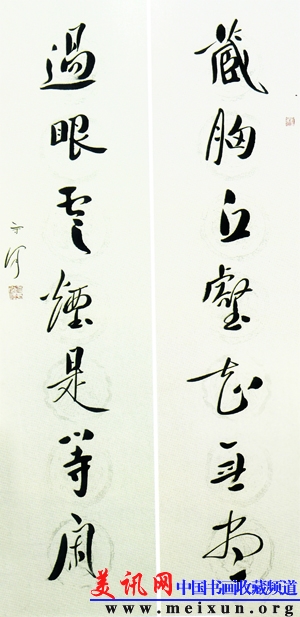 藏胸丘壑知無盡
過眼雲煙是等閑
美讯网 中国书画收藏频道
www.meixun.org